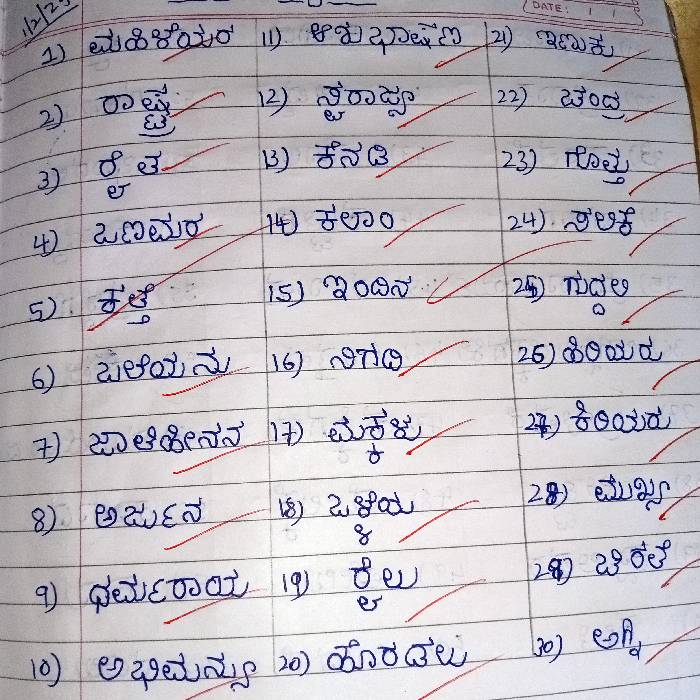 1/2/23 DATE:
1) ಮಹಿಳೆಯರ 11) ಆಶುಭಾಷಣ 21) ಇಣುಕು
2) ರಾಷ್ಟ್ರ 12) ಸ್ವರಾಜ್ಯ 22) ಚಂದ್ರ
3) ರೈತ 13) ಕೆನಡಿ 23) ಗೊತ್ತು
4) ಒಣಮರ 14) ಕಲಾಂ 24) ಸಲಿಕೆ
5) ಕತ್ತೆ 15) ಇಂದಿನ 25) ಗುದ್ದಲಿ
6) ಒಳೆಯನು 16) ನಿಗದಿ 26) ಹಿರಿಯರು
7) ಜಾತಿಹೀನನ 17) ಮಕ್ಕಳು 27) ಕಿರಿಯರು
8) ಅರ್ಜುನ 18) ಒಳ್ಳೆಯ 28) ಮುಖ್ಯ
9) ಧರ್ಮರಾಯ 19) ರೈಲು 29) ಚಿರತೆ
10) ಅಭಿಮನ್ಯು 20) ಹೊರಡಲು 30) ಅಗ್ನಿ